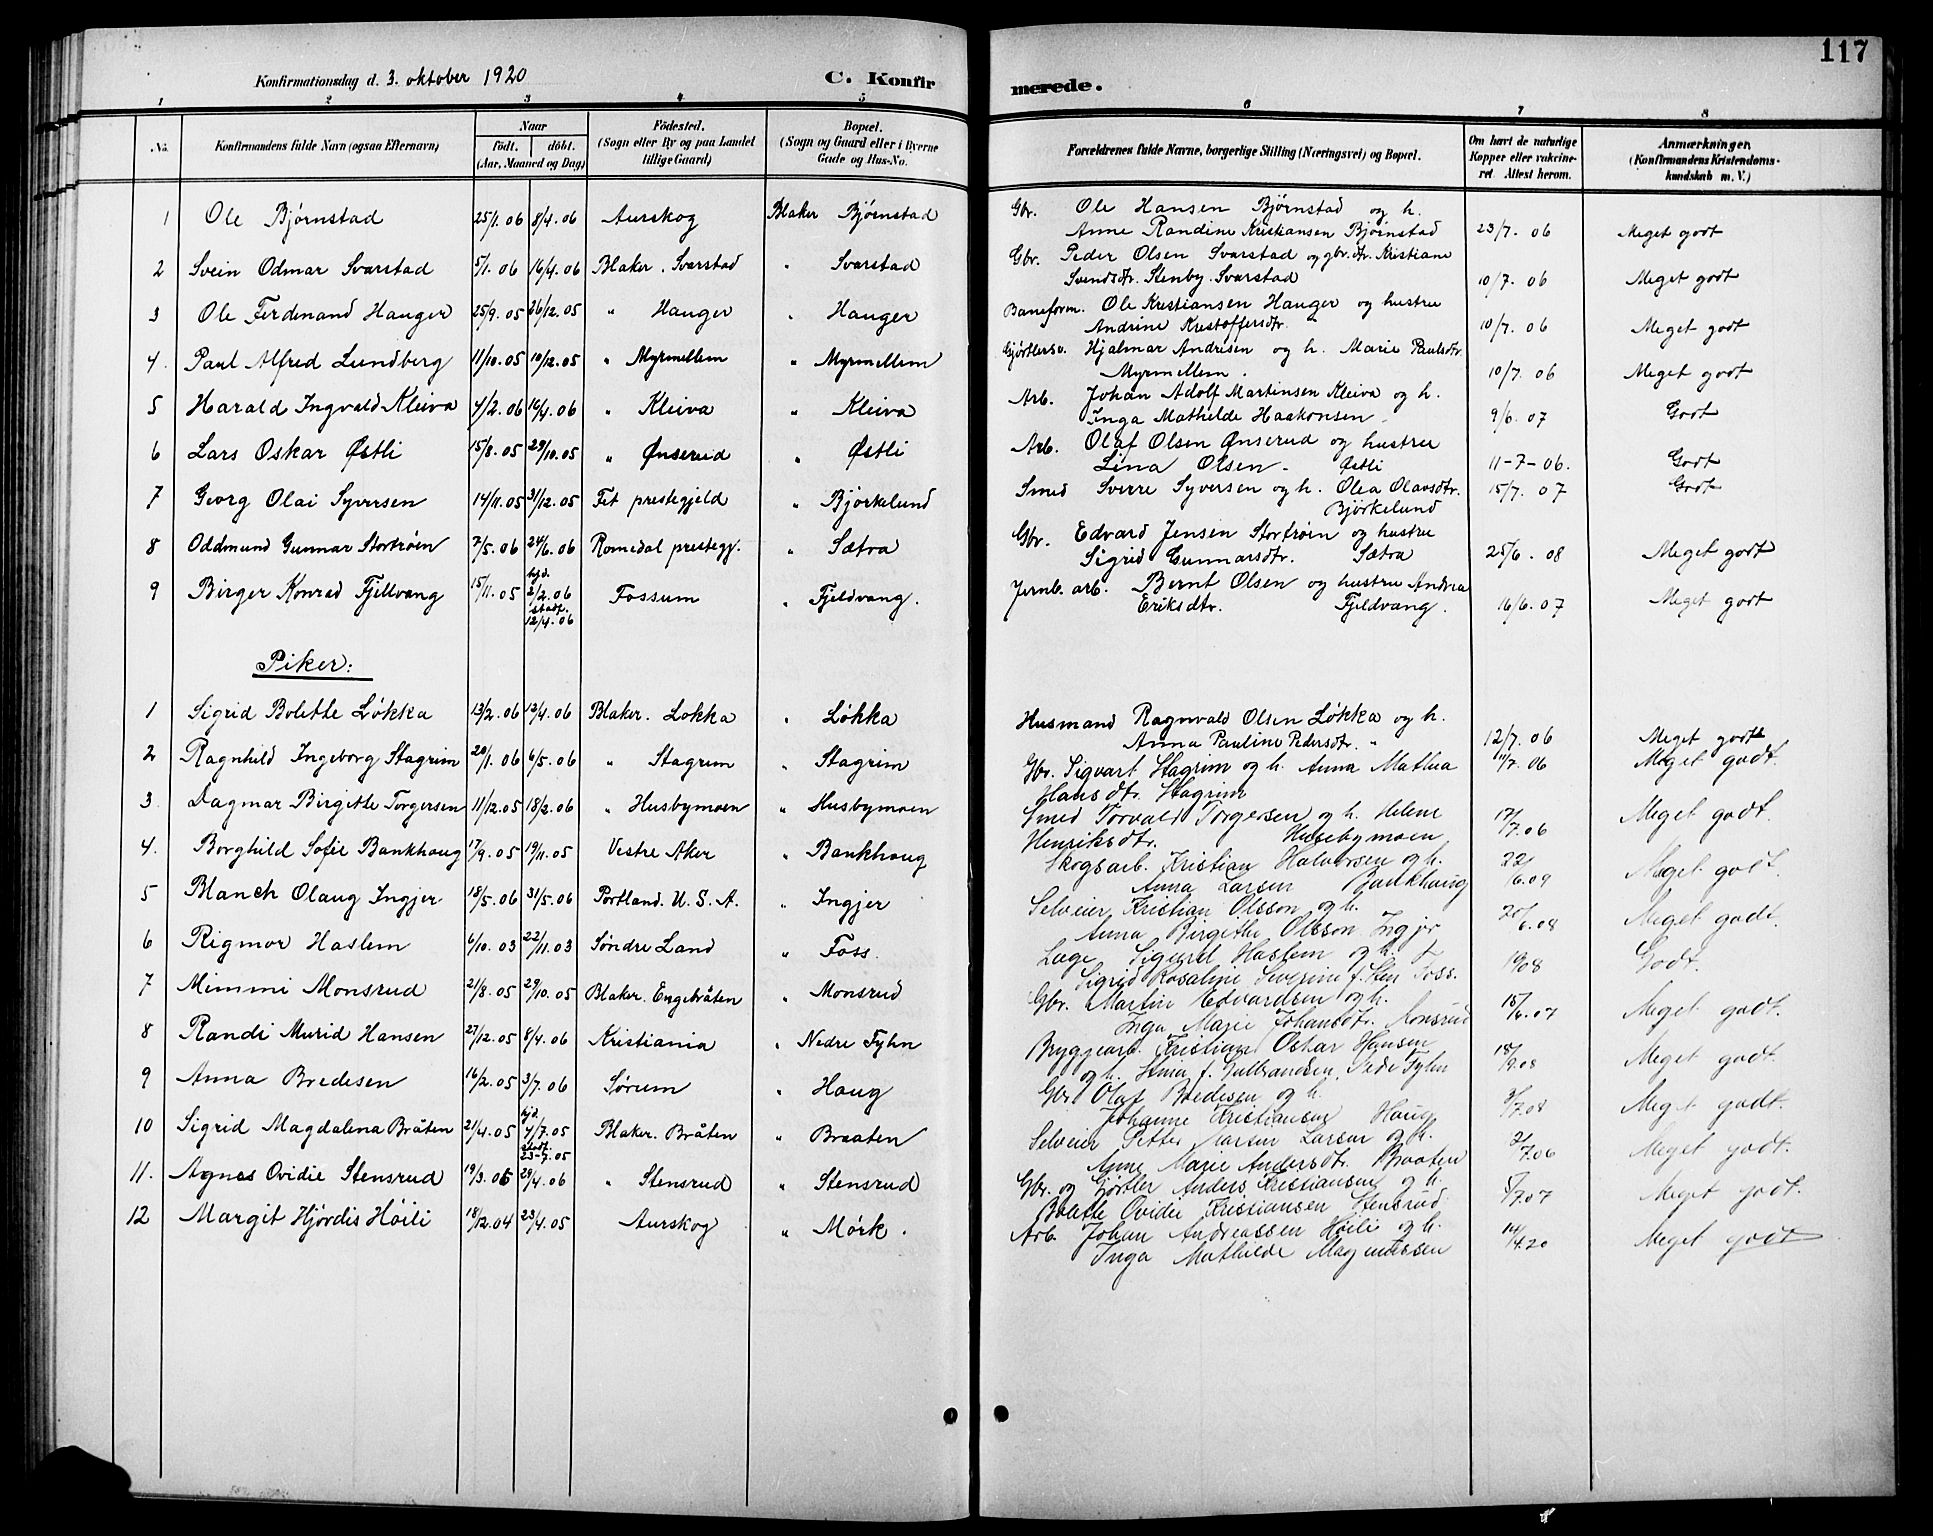 117
Konfirmationsdag d. 3. oktober 1920 C. Konfirmerede.
1 2 3 4 5 6 7 8
No. Konfirmandens fulde Navn (ogsaa Efternavn) Naar födt. döbt. (Aar, Maaned og Dag) Födested. (Sogn eller By og paa Landet tillige Gaard) Bopæl. (Sogn og Gaard eller i Byerne Gade og Hus-No. Forældrenes fulde Navne, borgerlige Stilling (Næringsvei) og Bopæl. Om havt de naturlige Kopper eller vakcineret. Attest herom. Anmærkninger. (Konfirmandens Kristendomskundskab m. V.)
1 Ole Bjørnstad 25/1. 06 8/4. 06 Aurskog Blaker Bjørnstad Gbr. Ole Hansen Bjørnstad og h.
Anne Randine Kristiansen Bjørnstad 23/7. 06 Meget godt
2 Svein Odmar Svarstad 5/1. 06 16/4. 06 Blaker. Svarstad " Svarstad Gbr. Peder Olsen Svarstad og gbr.dtr. Kristiane
Svendsdtr. Stenby. Svarstad 10/7. 06 Meget godt
3 Ole Ferdinand Hauger 25/9. 05 26/12. 05 " Hauger " Hauger Baneform. Ole Kristiansen Hauger og hustru
Andrine Kristoffersdtr. " 10/7. 06 Meget godt
4. Paul Alfred Lundberg 11/10. 05 10/12. 05 " Myrmellem " Myrmellem Gjørtlersv. Hjalmar Andresen og h. Marie Paulsdtr.
Myrmellem. 10/7. 06 Meget godt
5 Harald Ingvald Kleiva 4/2. 06 16/4. 06 " Kleiva " Kleiva Arb. Johan Adolf Martinsen Kleiva og h.
Inga Mathilde Haakonsen - 9/6. 07 Godt
6 Lars Oskar Østli 15/8. 05 29/10. 05 " Ønserud " Østli Arb. Olaf Olsen Ønserud og hustru
Lina Olsen - Østli 11-7-06. Godt
7 Georg Olai Syversen 14/11. 05 31/12. 05 Fet prestegjeld " Bjørkelund Smed Sverre Syversen og h. Olea Olavsdtr.
Bjørkelund 15/7. 07 Godt
8 Oddmund Gunnar Stortrøen 7/5. 06 24/6. 06 Romedal prestegj. " Sætra Gbr. Edvard Jensen Stortrøin og hustru
Sigrid Gunnarsdtr. Sætra 25/6. 08 Meget godt
9 Birger Konrad Fjellvang 15/11. 05 hjd. 2/2. 06 stadf. 12/4. 06 Fossum " Fjeldvang. Jernb. arb. Bernt Olsen og hustru Andrea
Eriksdtr. Fjeldvang. 16/6. 07 Meget godt
Piker:
1 Sigrid Bolette Løkka 13/2. 06 13/4. 06 Blaker. Løkka " Løkka Husmand Ragnvald Olsen Løkka og h.
Anna Pauline Pedersdtr. " 12/7. 06 Meget godt
2 Ragnhild Ingeborg Stagrim 20/1. 06 6/5. 06 " Stagrim " Stagrim Gbr. Sigvart Stagrim og h. Anna Mathea
Hansdtr. Stagrim 11/7. 06 Meget godt.
3 Dagmar Birgitte Torgersen 11/12. 05 18/2. 06 " Husbymoen " Husbymoen Smed Torvald Torgersen og h. Helene
Henriksdtr. Husebymoen 17/7. 06 Meget godt.
4. Borghild Sofie Bankhaug 17/9. 05 19/11. 05 Vestre Aker " Bankhaug Skogsarb. Kristian Halvorsen og h.
Anna Larsen Bankhaug 22/6. 09 Meget godt.
5 Blanch Olaug Ingjer 18/5. 06 31/5. 06 Portland. U. S. A. " Ingjer Selveier Kristian Olsson og h.
Anna Birgithe Olsson Ingjer 20/6. 08 Meget godt.
6 Rigmor Haslem 6/10. 03 22/11. 03 Søndre Land " Foss. Læge Sigurd Haslem og h.
Sigrid Rosaline Severine f. Sten Foss. 1908 Godt.
7 Mimmi Monsrud 21/8. 05 29/10. 05 Blaker. Engebråten " Monsrud Gbr. Martin Edvardsen og h.
Inga Marie Johansdtr. Monsrud 15/6. 07 Meget godt.
8 Randi Murid Hansen 27/12. 05 8/4. 06 Kristiania " Nedre Fyhn Bryggearb. Kristian Oskar Hansen
og h. Stina f. Gulbrandsen. Nedr Fyhn 18/9. 08 Meget godt.
9 Anna Bredesen 16/2. 05 3/7. 06 Sørum " Haug Gbr. Olaf Bredesen og h.
Johanne Kristiansen Haug 3/7. 08 Meget godt.
10 Sigrid Magdalena Bråten 21/4. 05 hjd. 4/7. 05 stadf. 23-7. 05 Blaker. Bråten " Braaten Selveier Petter Larsen og h.
Anne Marie Andersdtr. Braaten 2/7. 06 Meget godt.
11. Agnes Ovidie Stensrud 19/3. 06 29/4. 06 " Stensrud " Stensrud Gbr. og Gjørtler Anders Kristiansen og h.
Bolette Ovidie Kristiansen Stensrud 5/7. 07 Meget godt.
12 Margit Hjørdis Høili 18/12. 04 23/4. 05 Aurskog " Mørk. Arb. Johan Andreassen Høili og h.
Inga Mathilde Magnussen 14/4. 20 Meget godt